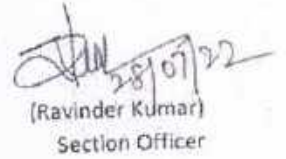 28/07/22
(Ravinder Kumar)
Section Officer